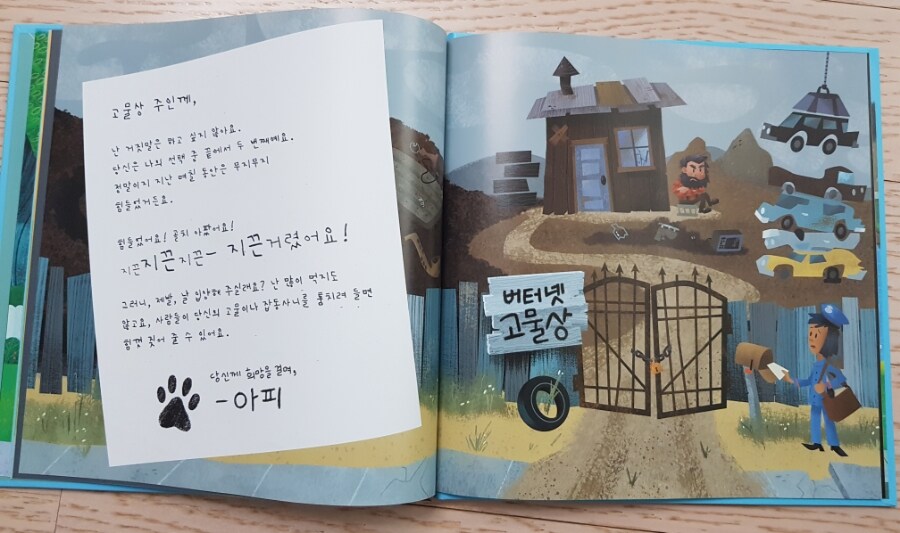 고물상 주인께,
난 거짓말은 하고 싶지 않아요.
당신은 나의 선택 중 끝에서 두 번째예요.
정말이지 지난 며칠 동안은 무지무지
힘들었거든요.
힘들었어요! 골치 아팠어요!
지끈지끈지끈- 지끈거렸어요!
그러니, 제발, 날 입양해 주실래요? 난 많이 먹지도
않고요, 사람들이 당신의 고물이나 잡동사니를 훔치려 들면
힘껏 짖어 줄 수 있어요.
당신께 희망을 걸며,
-아피
버터넷
고물상